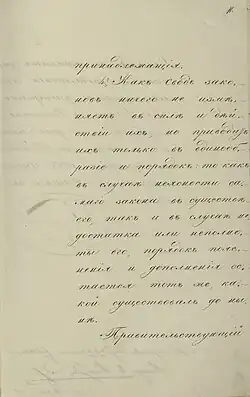 принадлежащія.
4. Какъ Сводъ зако-
новъ ничего не измѣ-
няетъ въ силѣ и дѣй-
ствіи ихъ, но приводитъ
ихъ только въ единооб-
разіе и порядокъ: то какъ
въ случаѣ неясности са-
маго закона въ существѣ
его, такъ и въ случаѣ не-
достатка или неполно-
ты его, порядокъ пояс-
ненія и дополненія ос-
тается тотъ же, ка-
кой существовалъ до ны-
нѣ.
Правительствующій